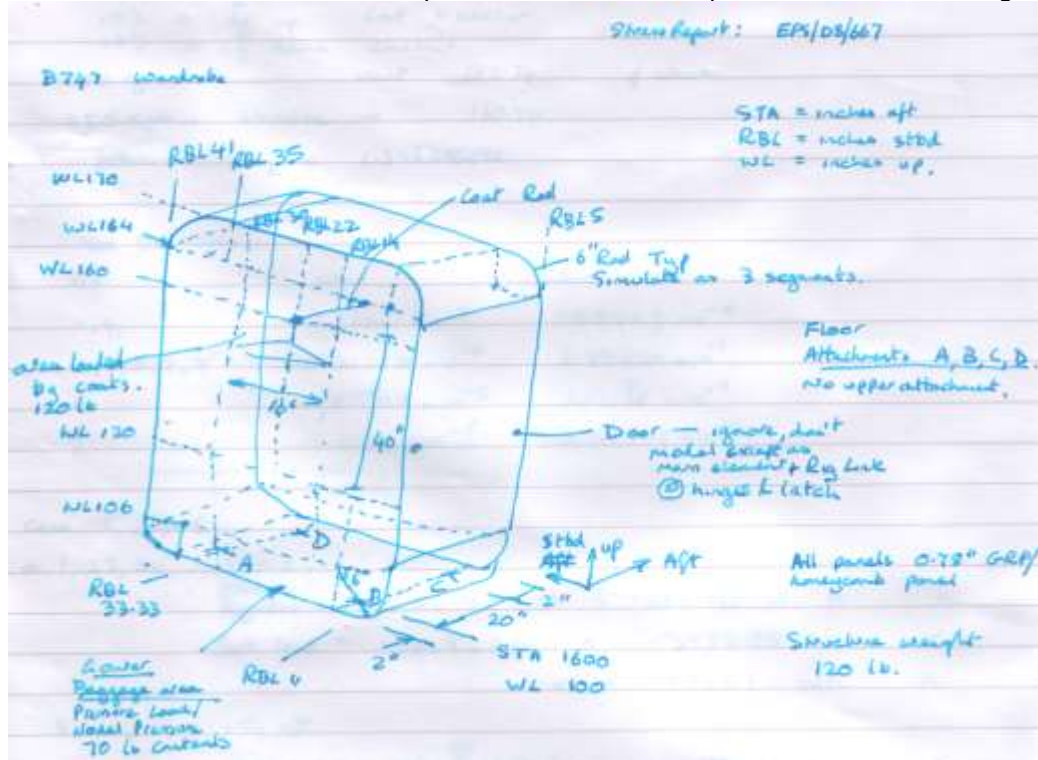 Stress Report: EPS/DS/667
B747 wardrobe
STA = inches aft
RBL = inches stbd
WL = inches up.
RBL 41
RBL 35
WL170
Coat Rod
WL164
RBL 22
RBL 14
RBL 5
WL160
6" Rad Typ
Simulate as 3 segments.
Floor
Attachments A, B, C, D.
No upper attachment.
area loaded
by coats.
120 lb
WL 120
40"
Door — ignore, don't
model except as
mass element & Rig Link
@ hinges & latch
WL106
D
A
6"
B
C
Stbd
up
Aft
All panels 0.78" GRP/
honeycomb panel
RBL
33.33
2"
20"
2"
STA 1600
WL 100
Structure weight
120 lb.
RBL 4
Lower
Baggage area
Pressure Load/
Nodal Pressure
70 lb Contents